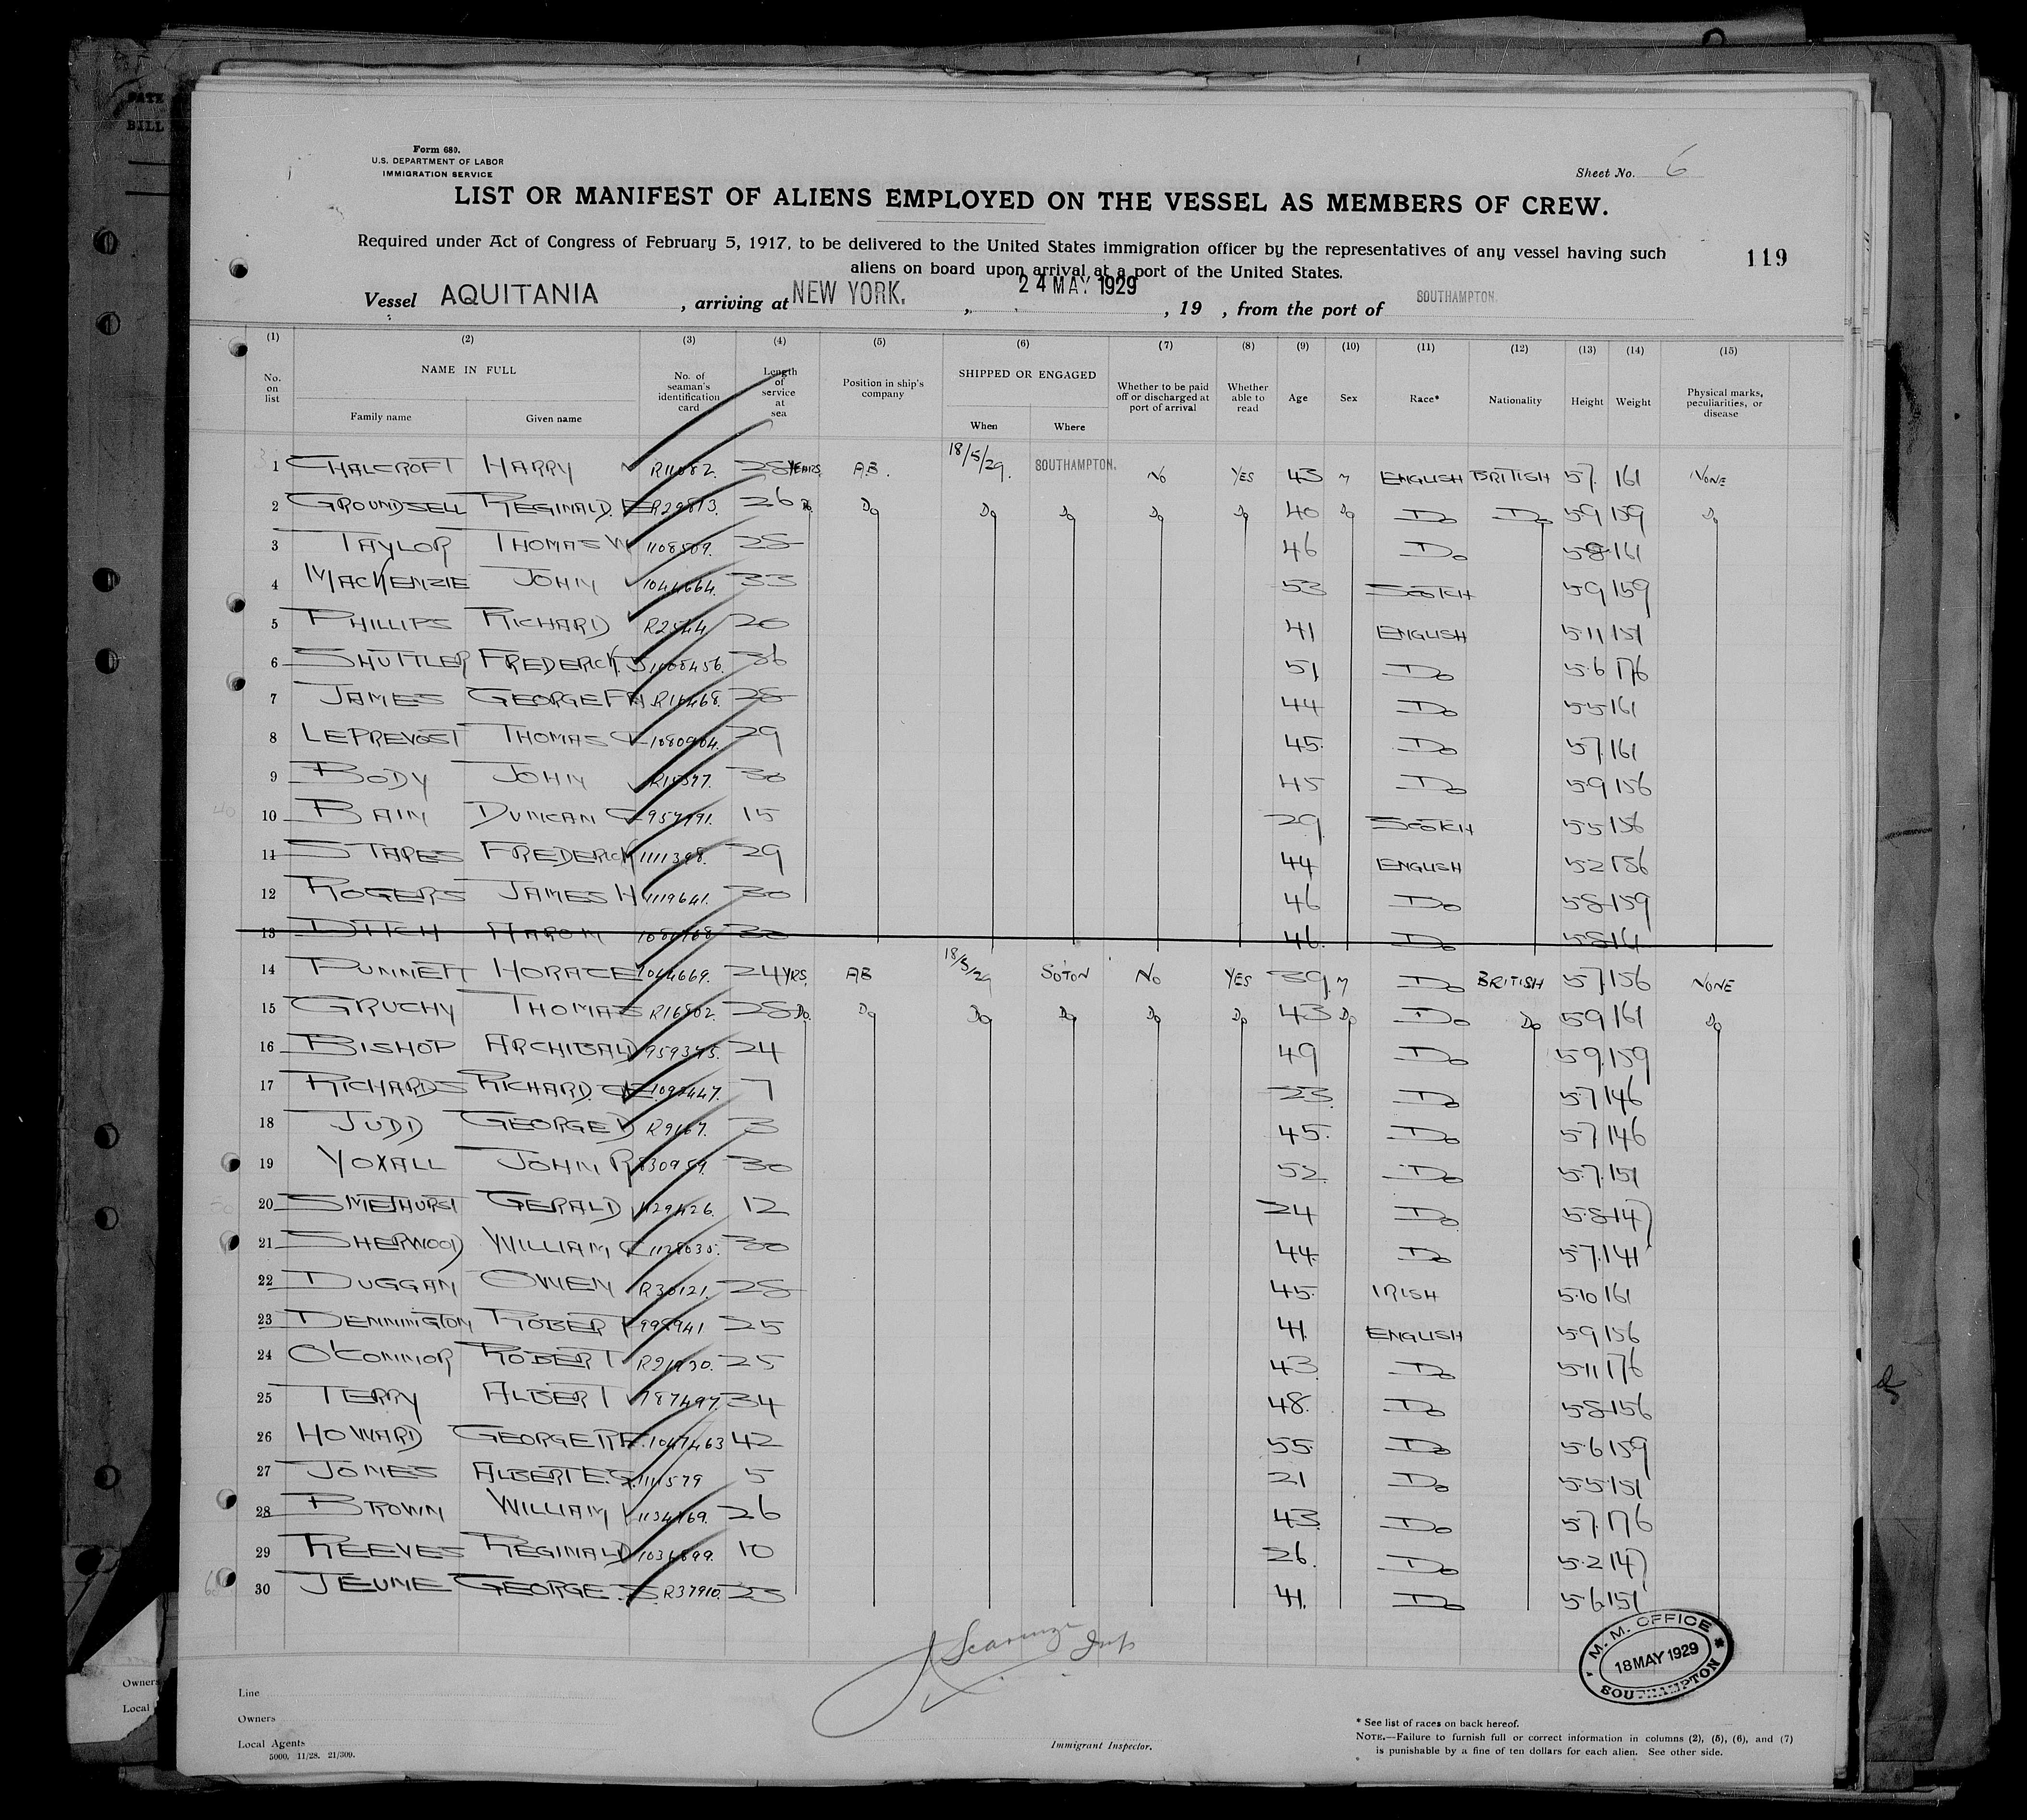 DATE
BILL
Form 680.
U.S. DEPARTMENT OF LABOR
IMMIGRATION SERVICE
Sheet No. 6
LIST OR MANIFEST OF ALIENS EMPLOYED ON THE VESSEL AS MEMBERS OF CREW.
Required under Act of Congress of February 5, 1917, to be delivered to the United States immigration officer by the representatives of any vessel having such
aliens on board upon arrival at a port of the United States.
119
Vessel AQUITANIA, arriving at NEW YORK, 24 MAY 1929, 19 , from the port of SOUTHAMPTON.
(1) (2) (3) (4) (5) (6) (7) (8) (9) (10) (11) (12) (13) (14) (15)
No. on list NAME IN FULL Family name Given name No. of seaman's identification card Length of service at sea Position in ship's company SHIPPED OR ENGAGED When Where Whether to be paid off or discharged at port of arrival Whether able to read Age Sex Race* Nationality Height Weight Physical marks, peculiarities, or disease
1 CHALCROFT HARRY 28 YEARS A.B. 18/5/29. SOUTHAMPTON. NO YES 43 M ENGLISH BRITISH 5.7. 161 NONE
2 GROUNDSELL REGINALD. E 26 Do Do Do Do Do Do 40 Do Do Do 5.9 159 Do
3 TAYLOR THOMAS W 1108509. 28 46 Do 5.8 161
4 MACKENZIE JOHN 1044664. 33 53 SCOTCH 5.9 159
5 PHILLIPS RICHARD 20 41 ENGLISH 5.11 151
6 SHUTTLER FREDERICK J 36 51 Do 5.6 176
7 JAMES GEORGE F 28 44 Do 5.5 161
8 LEPREVOST THOMAS 29 45. Do 5.7 161
9 BODY JOHN 30 45 Do 5.9 156
10 BAIN DUNCAN 15 29 SCOTCH 5.5 156
11 STARES FREDERICK 1111398. 29 44 ENGLISH 5.2 156
12 ROGERS JAMES H 1119641. 30 46 Do 5.8 159
13 DITCH AARON 30 46. Do 5.8 161
14 PUNNETT HORACE 1044669. 24 YRS. AB 18/5/29 SO'TON NO YES 39. M Do BRITISH 5.7. 156 NONE
15 GRUCHY THOMAS R16802. 28 Do. Do Do Do Do Do 43 Do Do Do 5.9 161 Do
16 BISHOP ARCHIBALD 959375. 24 49 Do 5.9. 159
17 RICHARDS RICHARD. 7 23. Do 5.7 146
18 JUDD GEORGE D R9167. 3 45. Do 5.7 146
19 YOXALL JOHN R 830959. 30 52 Do 5.7. 151
20 SMETHURST GERALD 12 24 Do 5.8 147
21 SHERWOOD WILLIAM 1128035. 30 44. Do 5.7. 141
22 DUGGAN OWEN R30121. 28 45. IRISH 5.10 161
23 DENNINGTON ROBERT 998941 25 41. ENGLISH 5.9 156
24 O'CONNOR ROBERT 25 43. Do 5.11 176
25 TERRY ALBERT 787497. 34 48. Do 5.8 156
26 HOWARD GEORGE 1047463 42 55. Do 5.6 159
27 JONES ALBERT E. G. 1111579 5 21 Do 5.5 151
28 BROWN WILLIAM 1134769. 26 43. Do 5.7. 176
29 REEVES REGINALD 1036899. 10 26. Do 5.2 147
30 JEUNE GEORGE. S. R37910. 25 41. Do 5.6 151
M. M. OFFICE
18 MAY 1929
SOUTHAMPTON
Owners
Local
Line
Owners
Local Agents
5000. 11/28. 21/309.
Immigrant Inspector.
* See list of races on back hereof.
NOTE.—Failure to furnish full or correct information in columns (2), (5), (6), and (7)
is punishable by a fine of ten dollars for each alien. See other side.